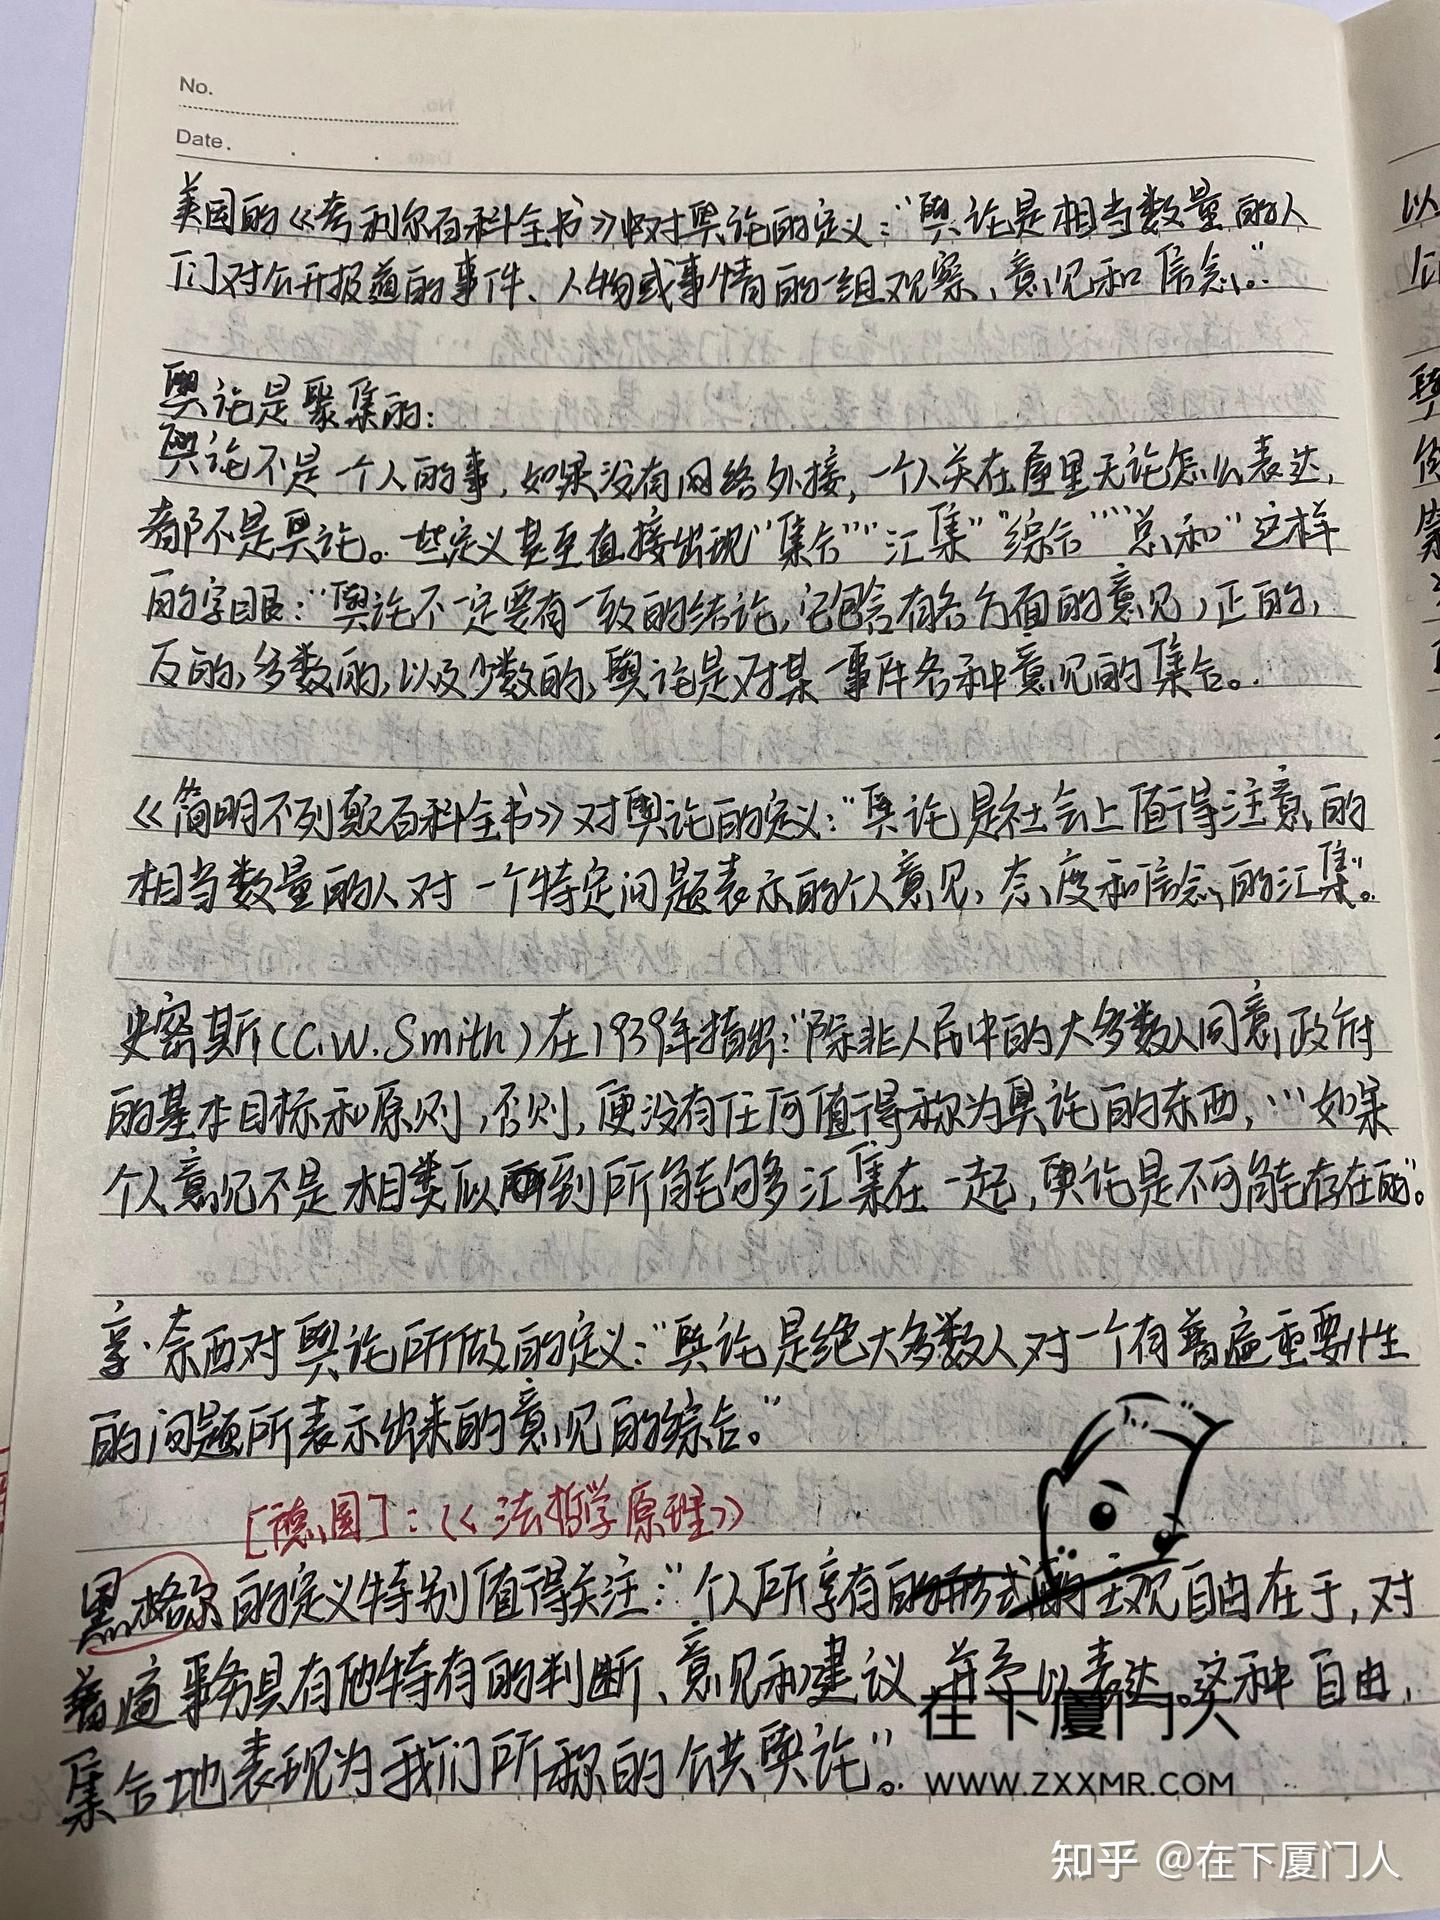 No.
Date.
美国的《考利尔百科全书》中对舆论的定义：“舆论是相当数量的人
们对公开报道的事件、人物或事情的一组观察、意见和信念。”
舆论是聚集的：
舆论不是一个人的事，如果没有网络外接，一个人关在屋里无论怎么表达，
都不是舆论。一些定义甚至直接出现“集合”“汇集”“综合”“总和”这样
的字眼：“舆论不一定要有一致的结论，它包含有各方面的意见，正的，
反的，多数的，以及少数的，舆论是对某一事件各种意见的集合。
《简明不列颠百科全书》对舆论的定义：“舆论是社会上值得注意的
相当数量的人对一个特定问题表示的个人意见、态度和信念的汇集”。
史密斯（C.W.Smith）在1939年指出：“除非人民中的大多数人同意政府
的基本目标和原则，否则，便没有任何值得称为舆论的东西，…如果
个人意见不是相类似到所能够多汇集在一起，舆论是不可能存在的”。
亨·奈西对舆论所做的定义：“舆论是绝大多数人对一个有普遍重要性
的问题所表示出来的意见的综合。”
[德国]：《法哲学原理》
黑格尔的定义特别值得关注：“个人所享有的形式的主观自由在于，对
普遍事务具有他特有的判断、意见和建议，并予以表达。这种自由，
集合地表现为我们所称的公共舆论”。
在下厦门人
WWW.ZXXMR.COM
知乎 @在下厦门人